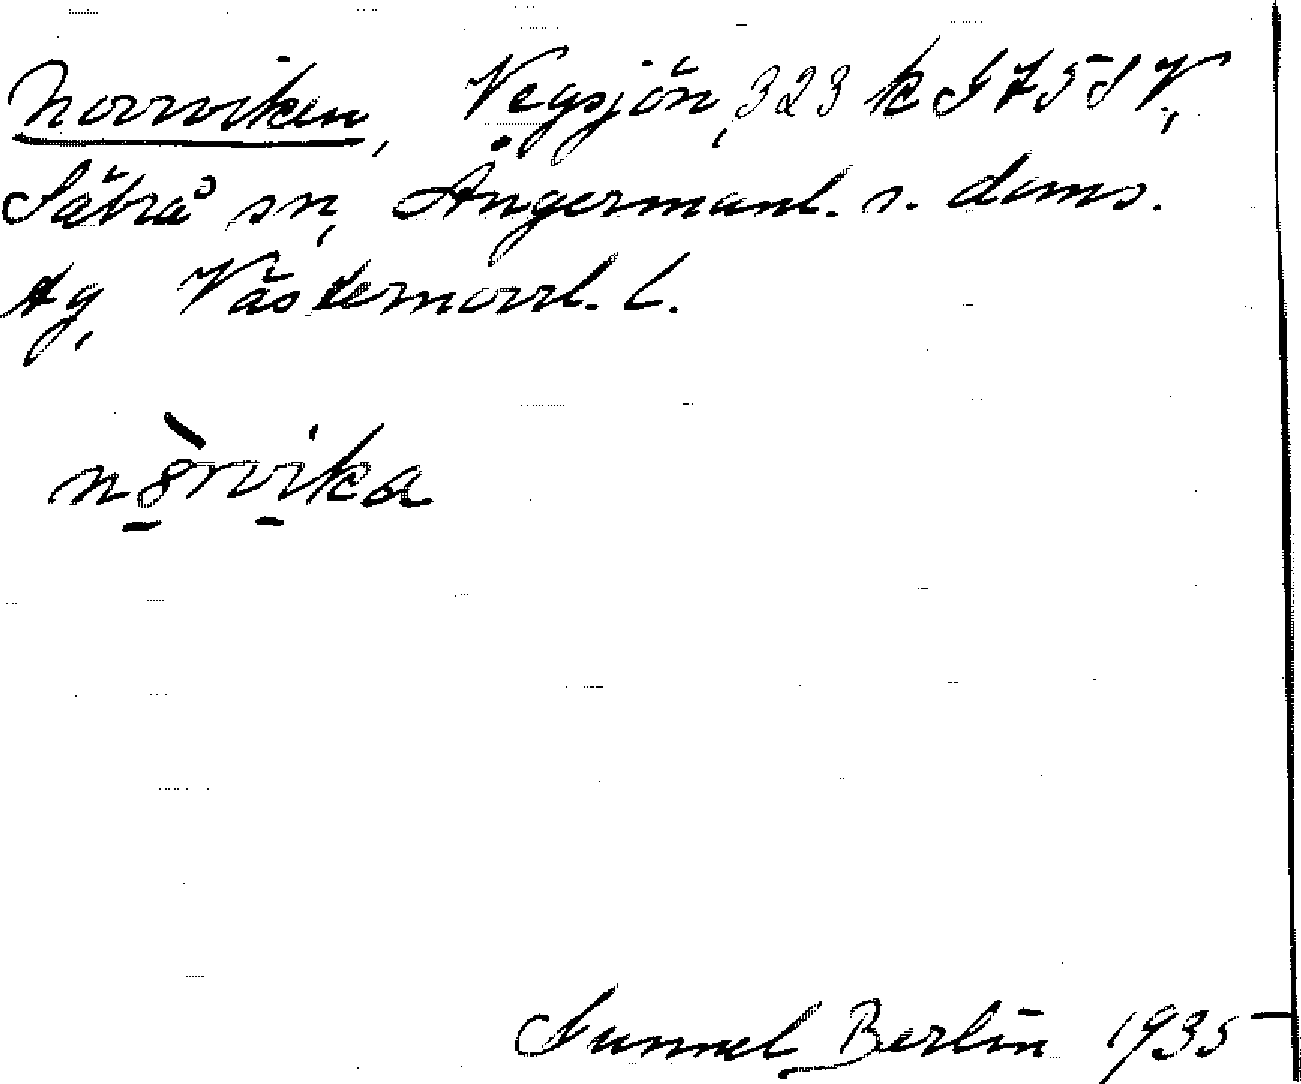 Norrviken, Vegsjön, 323 k S 75 S V,
Säbrå sn, Ångermanl. s. doms.
tg, Västernorrl. l.
nòrvika
Gunnel Berlin 1935